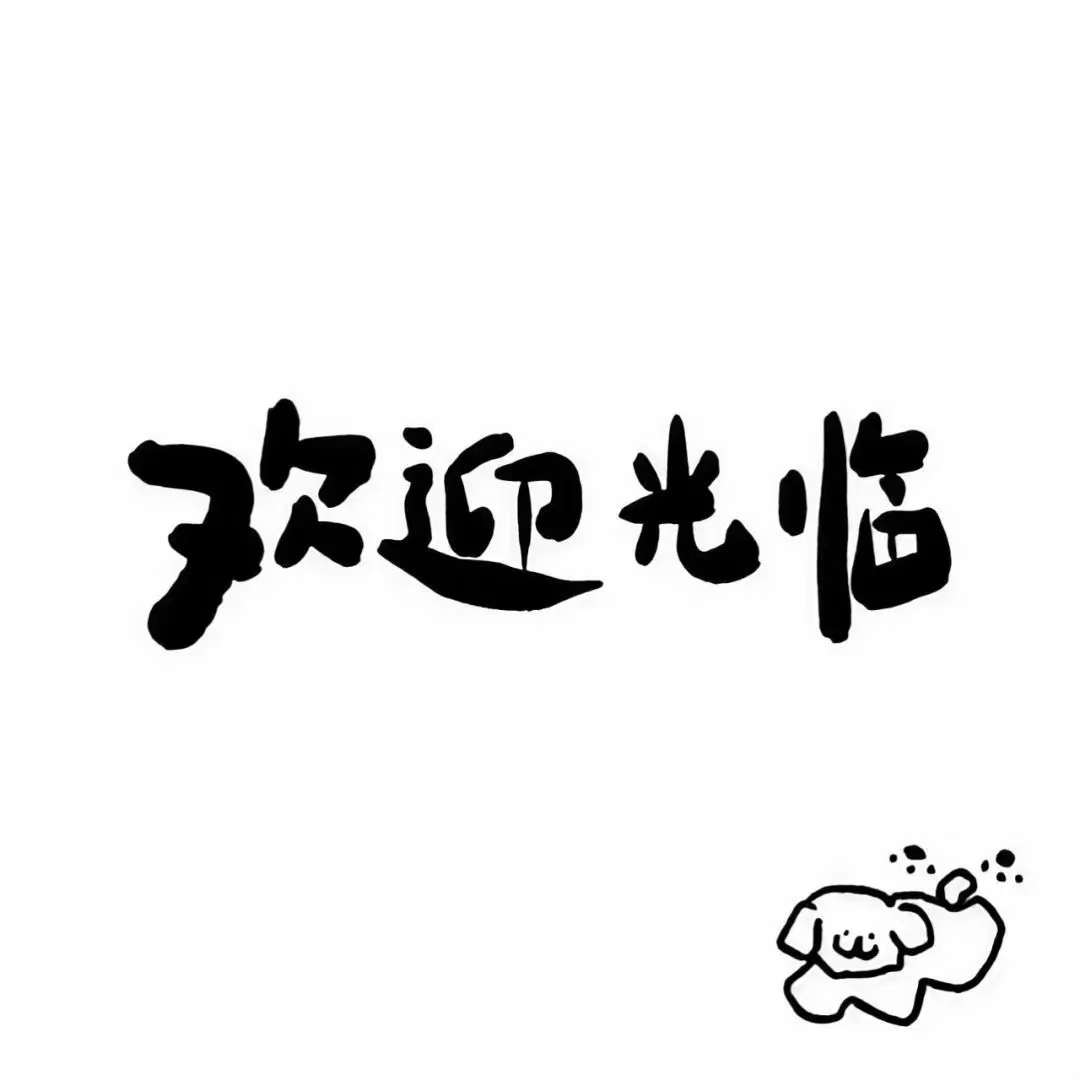 欢迎光临